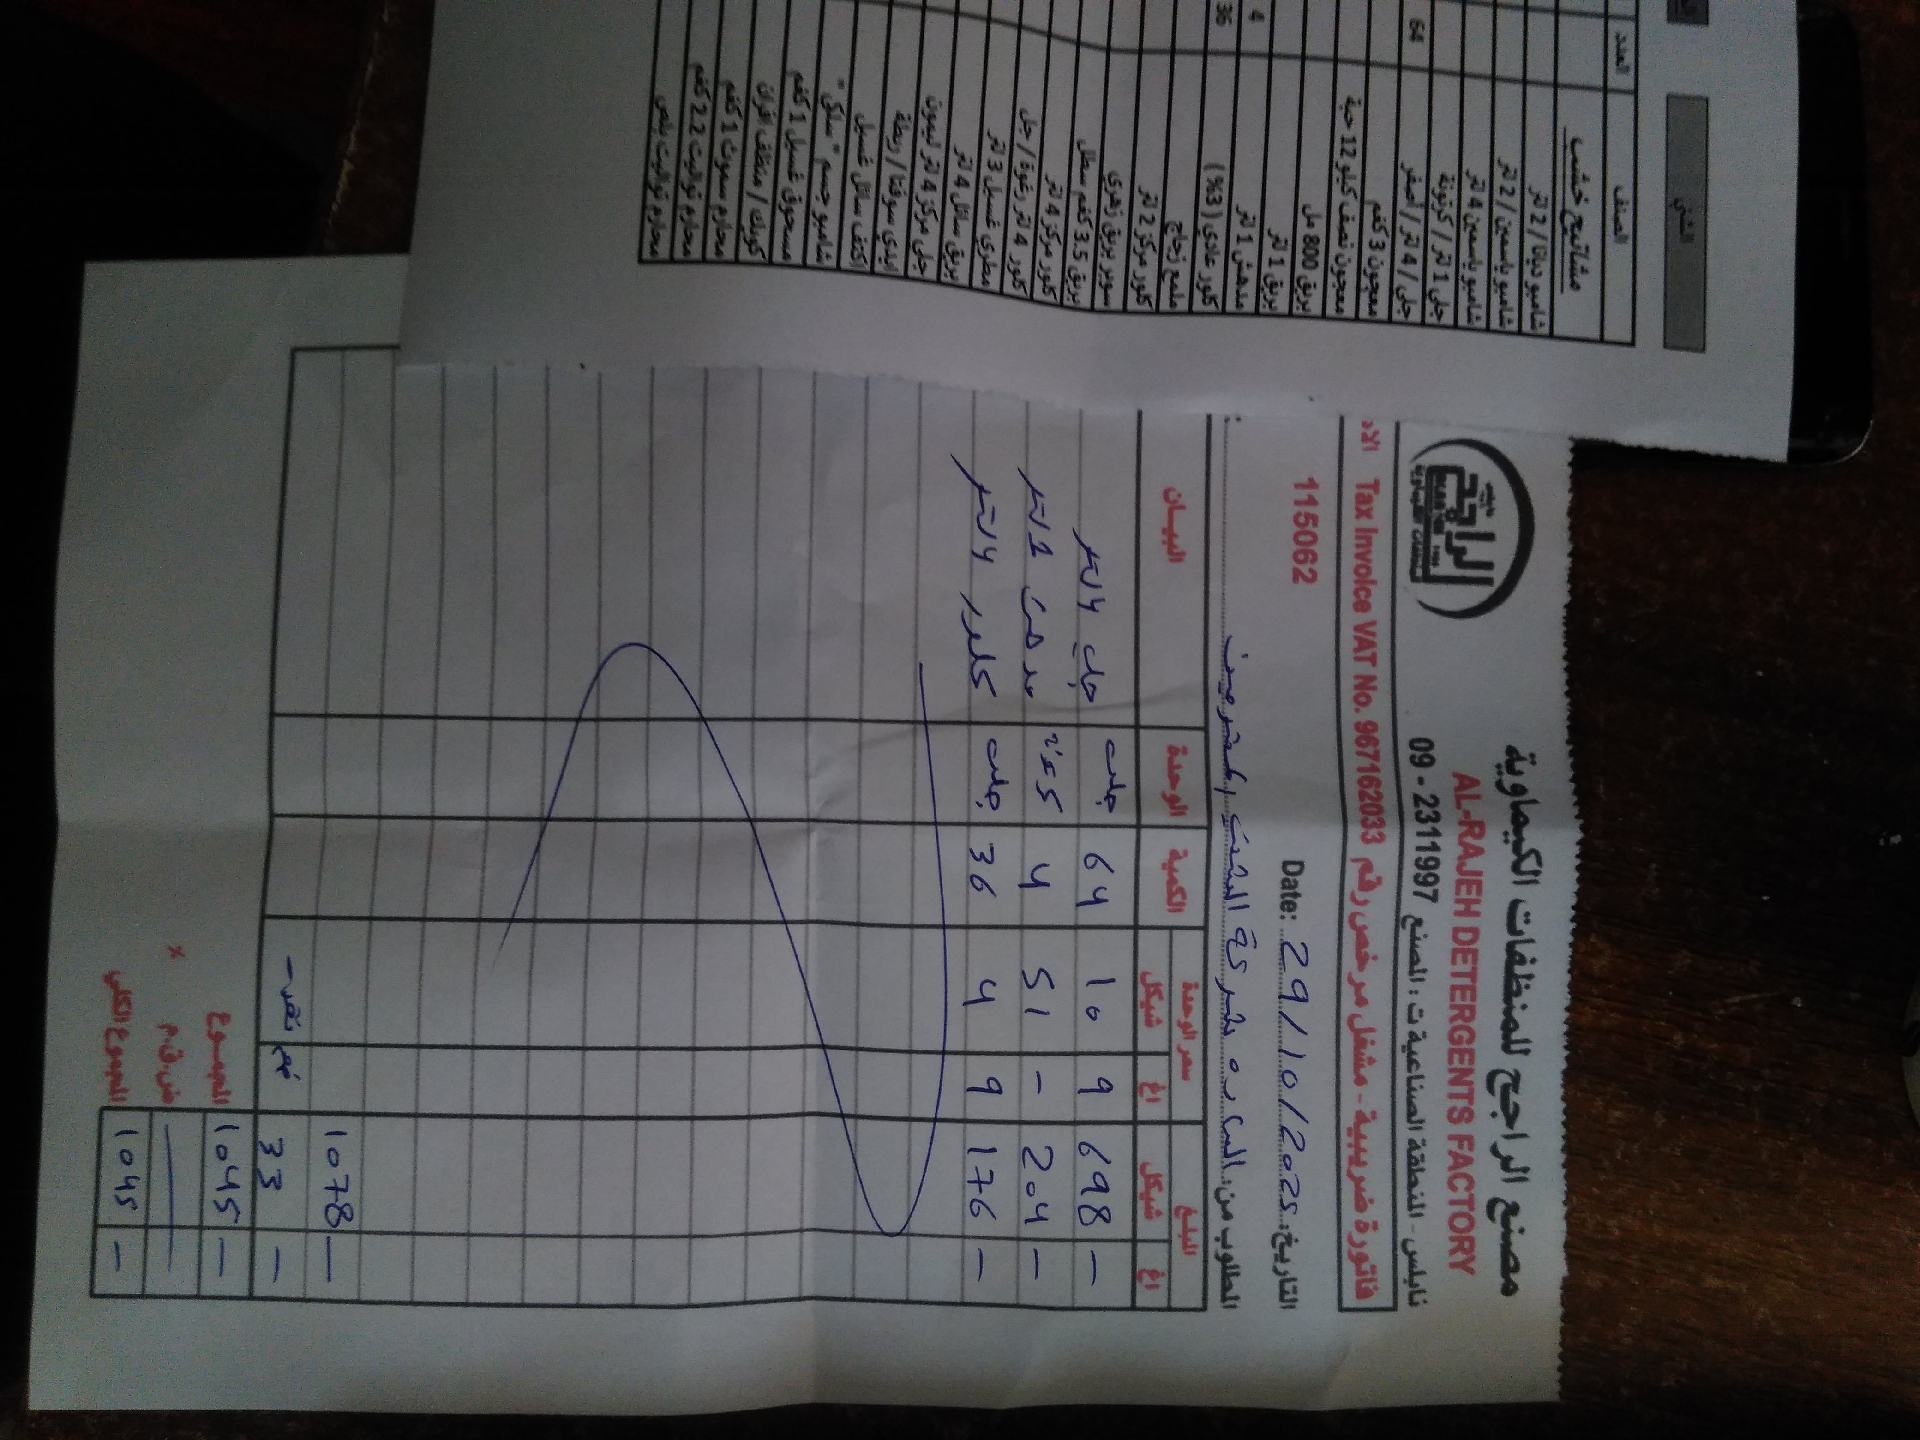 الشني
العدد الصنف
مشاتيح خشب
شامبو ديانا / 2 لتر
شامبو ياسمين / 2 لتر
شامبو ياسمين 4 لتر
جلي 1 لتر / كرتونة
64 جلي / 4 لتر / أصفر
معجون 3 كغم
معجون نصف كيلو 12 حبة
بريق 800 مل
بريق 1 لتر
4 مدهش 1 لتر
36 كلور عادي (3%)
ملمع زجاج
كلور مركز 2 لتر
سوبر بريق زهري
بريق 3.5 كغم سطل
كلور مركز 4 لتر
كلور 4 لتر رغوة / جل
مطري غسيل 3 لتر
بريق سائل 4 لتر
جلي مركز 4 لتر ليمون
ايدي سوفتا / ربطة
اكتف سائل غسيل
شامبو جسم "سلكي"
مسحوق غسيل 1 كغم
كويك / منظف افران
محارم سموث 1 كغم
محارم تواليت 2.2 كغم
محارم تواليت بلص
مصنع الراجح للمنظفات الكيماوية
AL-RAJEH DETERGENTS FACTORY
نابلس - المنطقة الصناعية ت : المصنع 2311997 - 09
الراجح
فاتورة ضريبية - مشغل مرخص رقم Tax Invoice VAT No. 967162033
التاريخ: 29/10/2025 Date:
115062
المطلوب من: شركة
البيان الوحدة الكمية سعر الوحدة المبلغ
شيكل اغ شيكل اغ
جلي 4 لتر جلن 64 10 9 698 -
مدهش 1 لتر 4 51 - 204 -
كلور 4 لتر جلن 36 4 9 176 -
1078 -
خصم نقدي 33 -
المجموع 1045 -
ض.ق.م
المجموع الكلي 1045 -